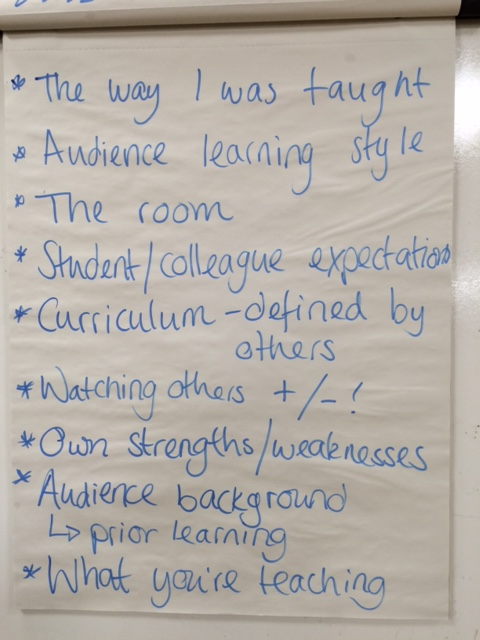 * The way I was taught
* Audience learning style
* The room
* Student/colleague expectations
* Curriculum - defined by
others
* Watching others +/-!
* Own strengths/weaknesses
* Audience background
↳ prior learning
* What you're teaching